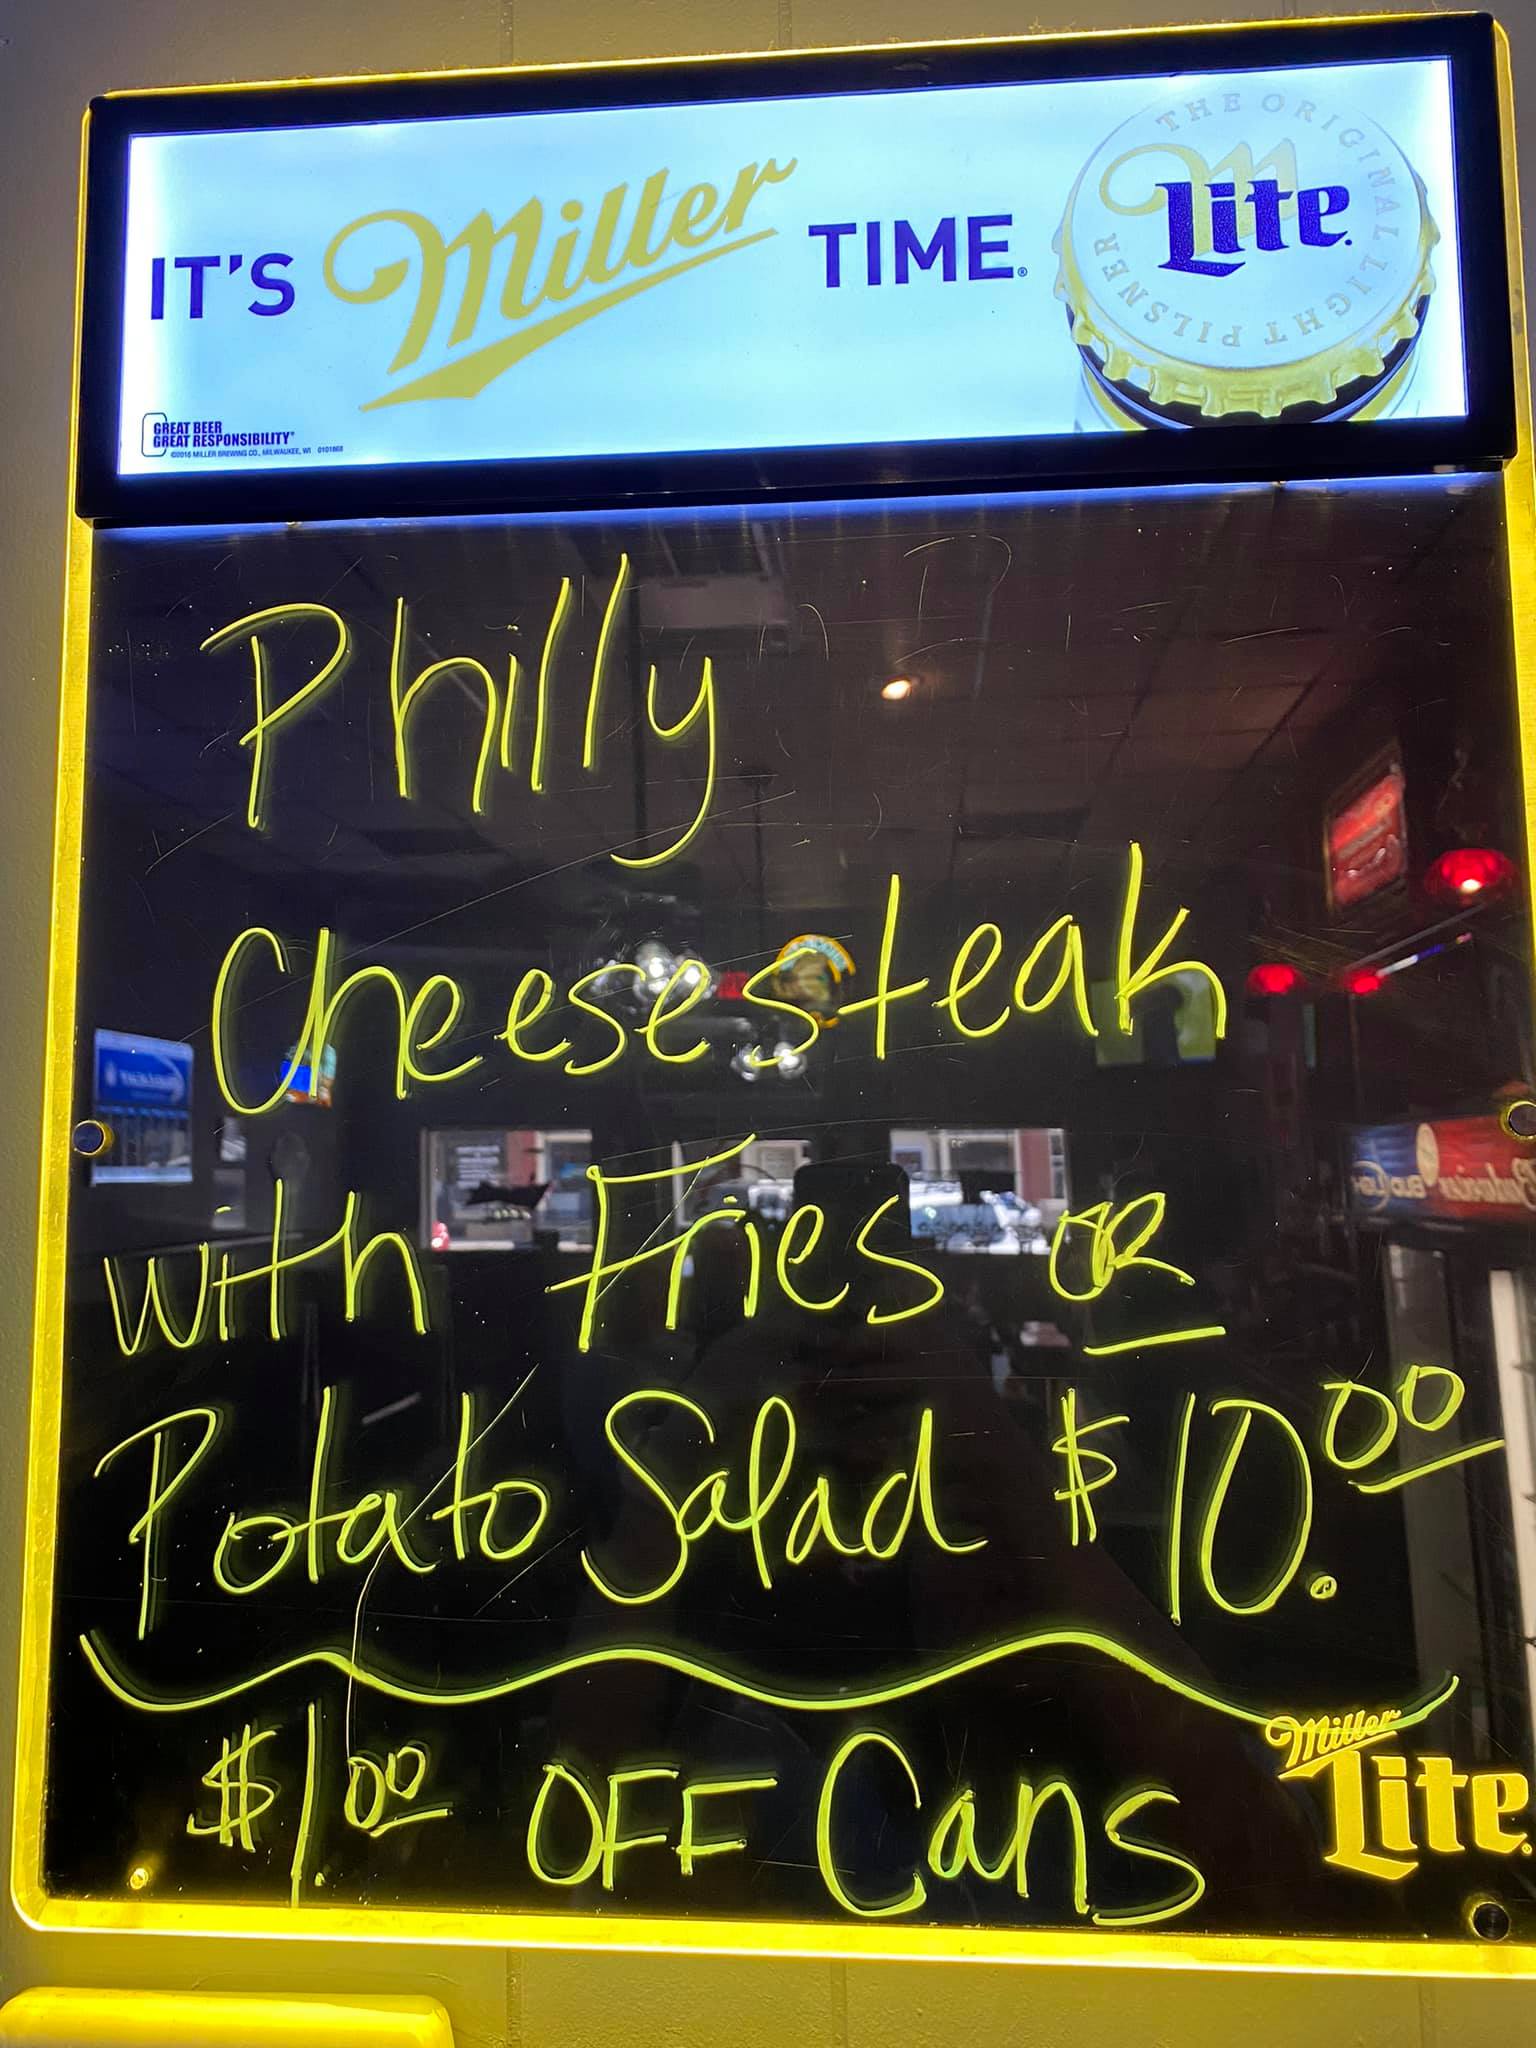 IT'S Miller TIME.®
THE ORIGINAL LIGHT PILSNER
Lite
GREAT BEER
GREAT RESPONSIBILITY®
©2016 MILLER BREWING CO., MILWAUKEE, WI 0101868
Philly
Cheesesteak
with Fries OR
Potato Salad $10.00
$1.00 OFF Cans
Miller
Lite